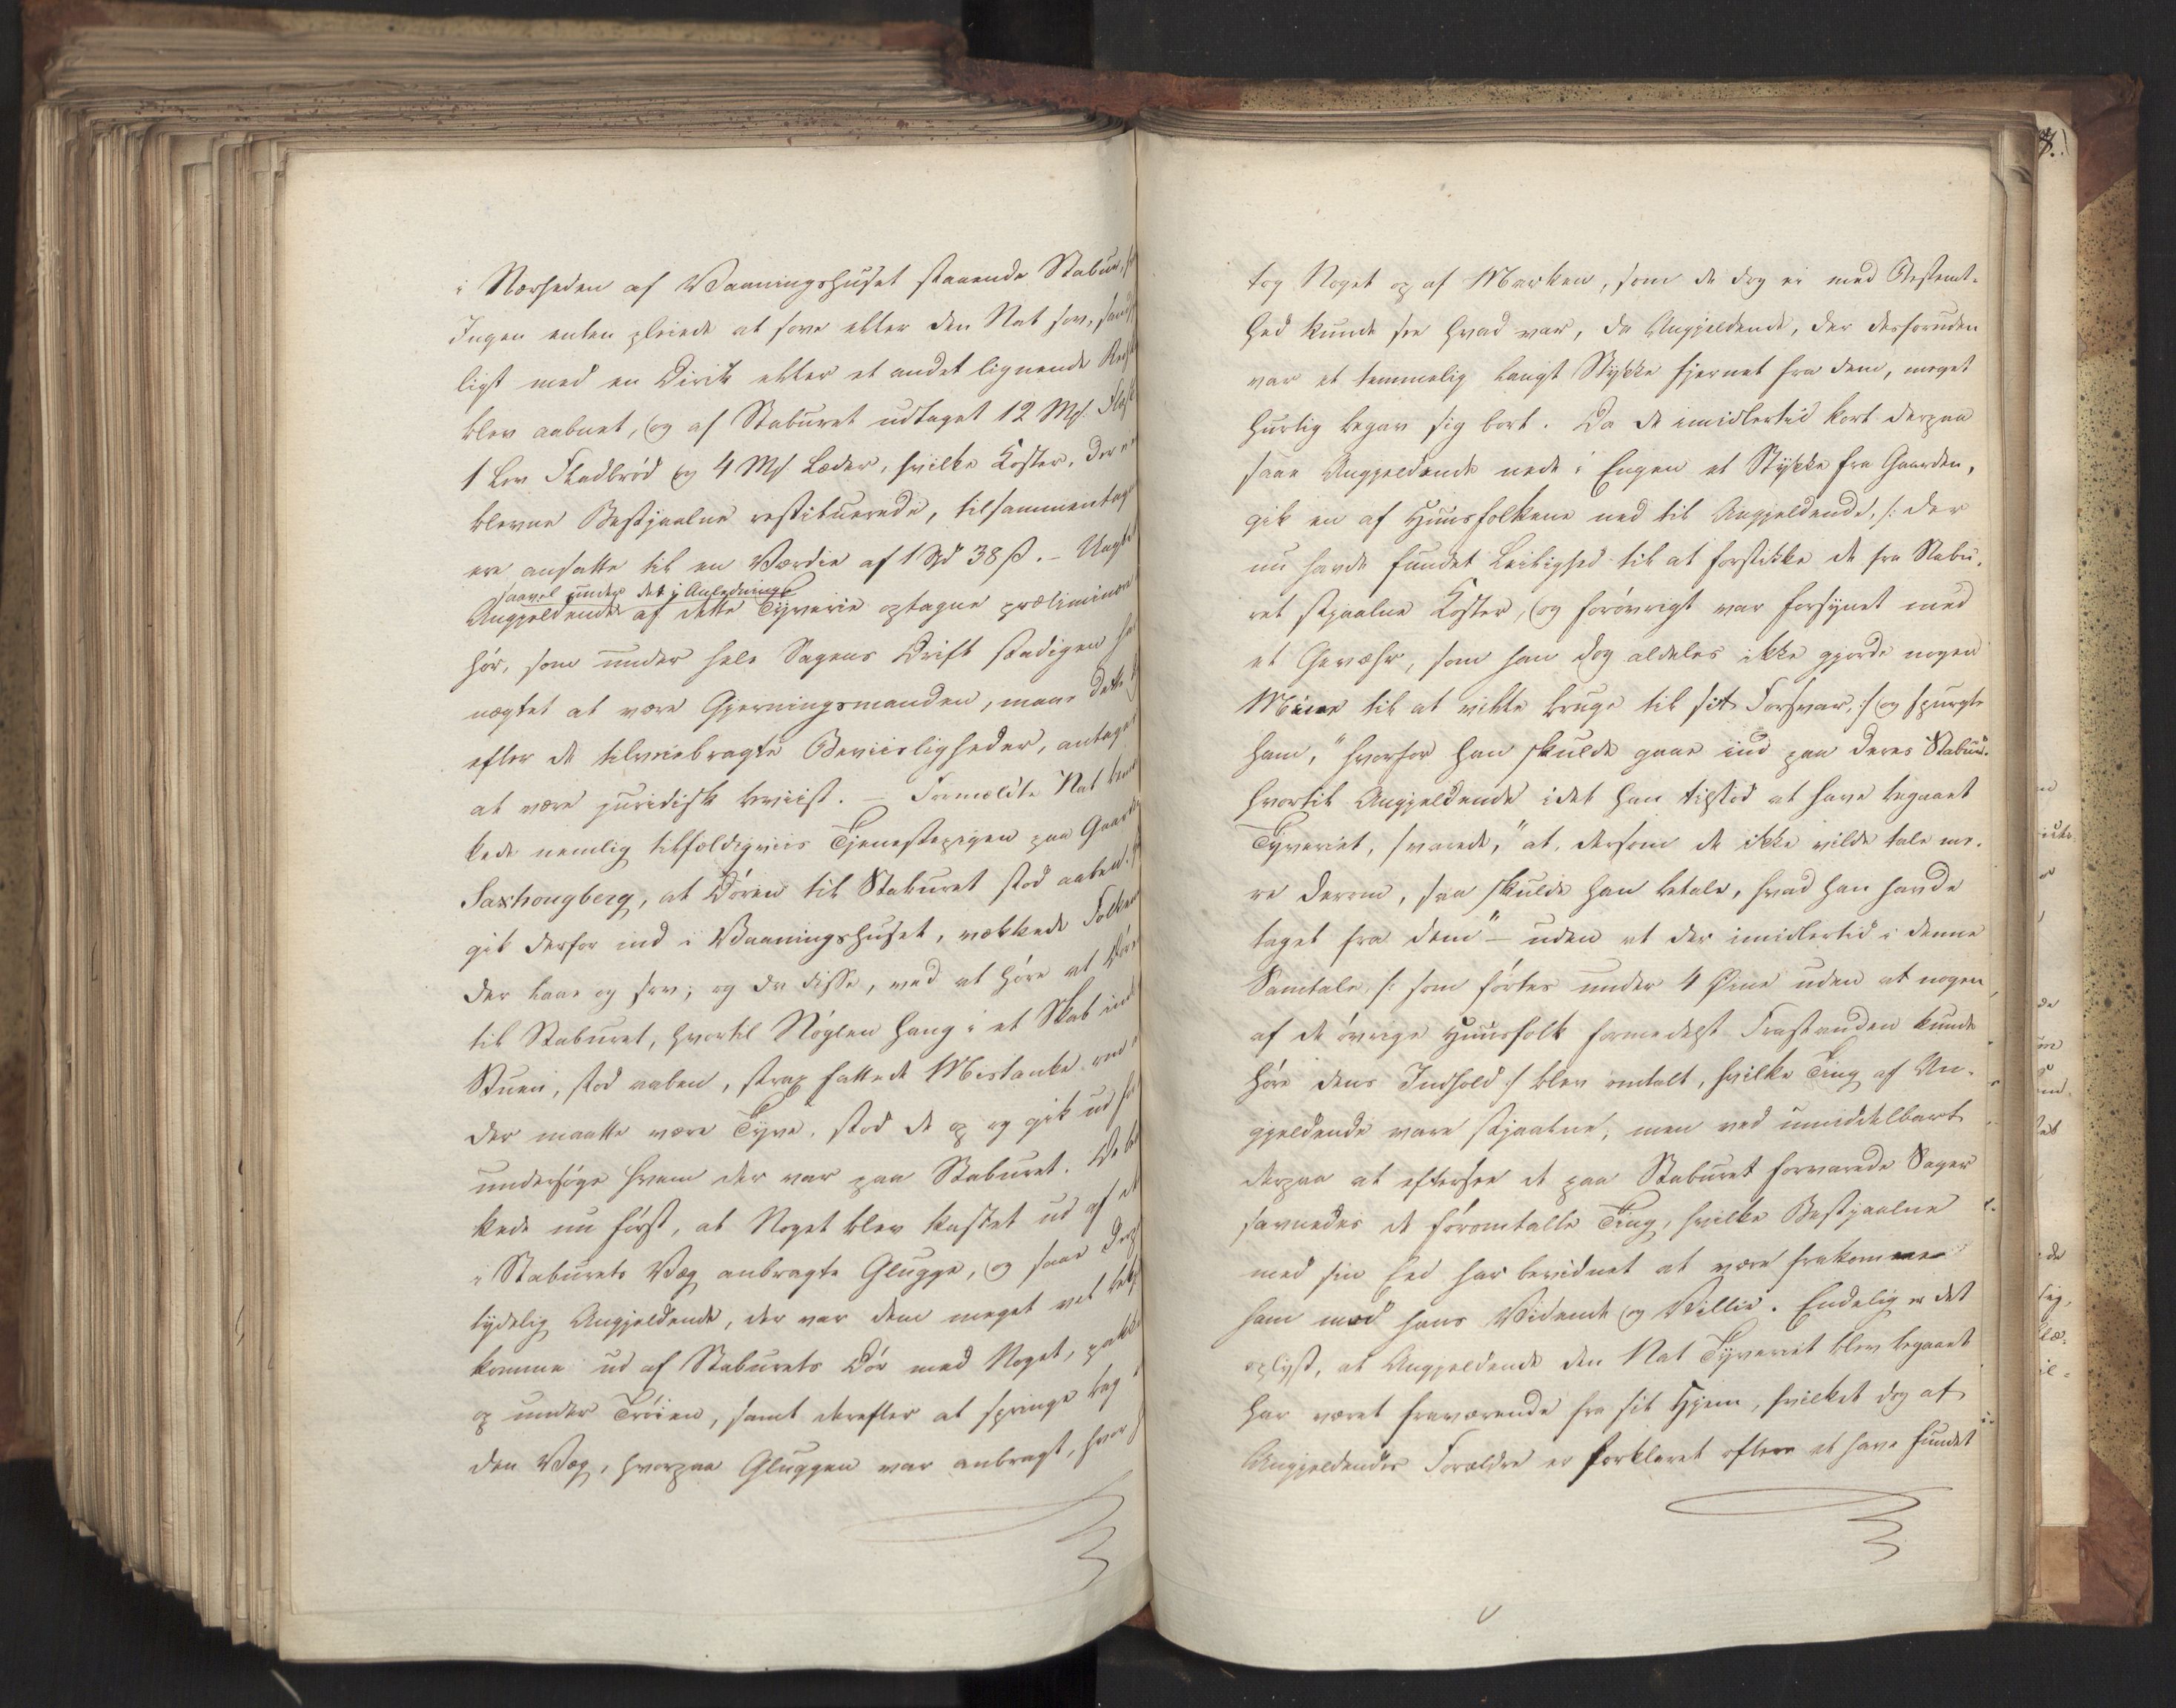 i Nærheden af Vaaningshuset staaende Stabur,
Ingen enten pleiede at sove eller den Nat sov, sand
ligt med en Dirik eller et andet lignende Red
blev aabnet, og af Staburet udtaget 12 Mk. Flesk
1 Lev Fladbrød og 4 Mk. Læder, hvilke Koster, der
blevne Bestjaalne restituerede, tilsammentag
ere ansatte til en Værdie af 1 Spd 38 ß. – Uagt
saavel under det i Anledning
Angjeldende af dette Tyverie optagne præliminær
hør, som under hele Sagens Drift stadigen ha
nægtet at være Gjerningsmanden, maae dette
efter de tilveiebragte Beviisligheder, antage
at være juridisk beviist. – Formeldte Nat
kede nemlig tilfældigviis Tjenestepigen paa Gaard
Saxhougberg, at Døren til Staburet stod aaben,
gik derfor ind i Vaaningshuset, vækkede Folken
der laae og sov; og da disse, ved at høre at Dør
til Staburet, hvortil Nøglen hang i et Skab ind
Stuen, stod aaben, strax fattede Mistanke om
der maatte være Tyve, stod de op og gik ud for
undersøge hvem der var paa Staburet. De
kede nu først, at Noget blev kastet ud af et
i Staburets Væg anbragte Glugge, og saae derp
tydelig Angjeldende, der var dem meget vel bekj
komme ud af Staburets Dør med Noget, pakke
op under Trøien, samt derefter at springe bag
den Væg, hvorpaa Gluggen var anbragt, hvor h
tog Noget op af Marken, som de dog ei med Bestemt-
hed kunde see hvad var, da Angjeldende, der desforuden
var et temmelig langt Stykke fjernet fra dem, meget
hurtig begav sig bort. Da de imidlertid kort derpaa
saae Angjeldende nede i Engen et Stykke fra Gaarden,
gik en af Huusfolkene ned til Angjeldende, /: der
nu havde fundet Leilighed til at forstikke de fra Stabu-
ret stjaalne Koster, og forøvrigt var forsynet med
et Gevæhr, som han dog aldeles ikke gjorde nogen
Mine til at ville bruge til sit Forsvar, :/ og spurgte
ham, "hvorfor han skulde gaae ind paa deres Stabuur"
hvortil Angjeldende idet han tilstod at have begaaet
Tyveriet, svarede, "at, dersom de ikke vilde tale me-
re derom, saa skulde han betale, hvad han havde
taget fra dem" – uden at der imidlertid i denne
Samtale, /: som førtes under 4 Øine uden at nogen
af de øvrige Huusfolk formedelst Frastanden kunde
høre dens Indhold :/ blev omtalt, hvilke Ting af An-
gjeldende vare stjaalne, men ved umiddelbart
derpaa at eftersee de paa Staburet forvarede Sager
savnedes de føromtalte Ting, hvilke Bestjaalne
med sin Eed har bevidnet at være frakomne
ham mod hans Vidende og Villie. Endelig er det
oplyst, at Angjeldende den Nat Tyveriet blev begaaet
har været fraværende fra sit Hjem, hvilket dog af
Angjeldendes Forældre er forklaret oftere at have fundet